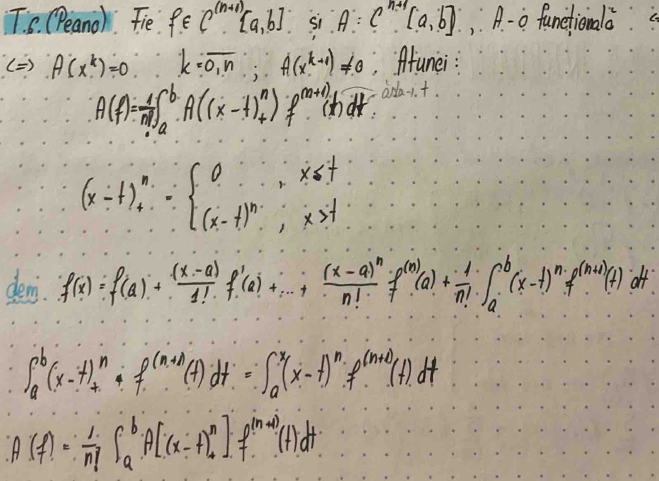 T.6. (Peano) Fie f ∈ C^(n+1) [a,b] și A : C^(n+1) [a,b], A - o funcțională
(=) A(x^k)=0 k=\overline{0,n} ; A(x^{k+1}) ≠ 0. Atunci :
A(f) = \frac{1}{n!} ∫_a^b A((x-t)_+^n) f^{(n+1)} (t) dt. ăsta-i t
(x-t)_+^n = { 0 , x ≤ t
(x-t)^n , x > t
dem. f(x) = f(a) + \frac{(x-a)}{1!} f'(a) + ... + \frac{(x-a)^n}{n!} f^{(n)}(a) + \frac{1}{n!} ∫_a^b (x-t)^n f^{(n+1)}(t) dt
∫_a^b (x-t)_+^n · f^{(n+1)}(t) dt = ∫_a^x (x-t)^n f^{(n+1)}(t) dt
A(f) = \frac{1}{n!} ∫_a^b A[(x-t)_+^n] f^{(n+1)}(t) dt